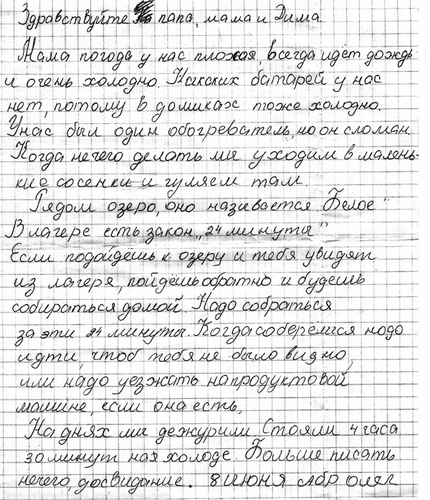 Здравствуйте папа, мама и Дима.
Мама погода у нас плохая, всегда идёт дождь
и очень холодно. Никаких батарей у нас
нет, потому в домиках тоже холодно.
У нас был один обогреватель, но он сломан
Когда нечего делать мы уходим в малень-
кие сосенки и гуляем там.
Рядом озеро, оно называется "Белое"
В лагере есть закон "24 минуты"
Если подойдёшь к озеру и тебя увидят
из лагеря, пойдёшь обратно и будешь
собираться домой. Надо собраться
за эти 24 минуты. Когда соберёмся надо
идти, чтоб тебя не было видно,
или надо уезжать на продуктовой
машине, если она есть.
На днях мы дежурили. Стояли 4 часа
на холоде. Больше писать
нечего, досвидание. 8 июня